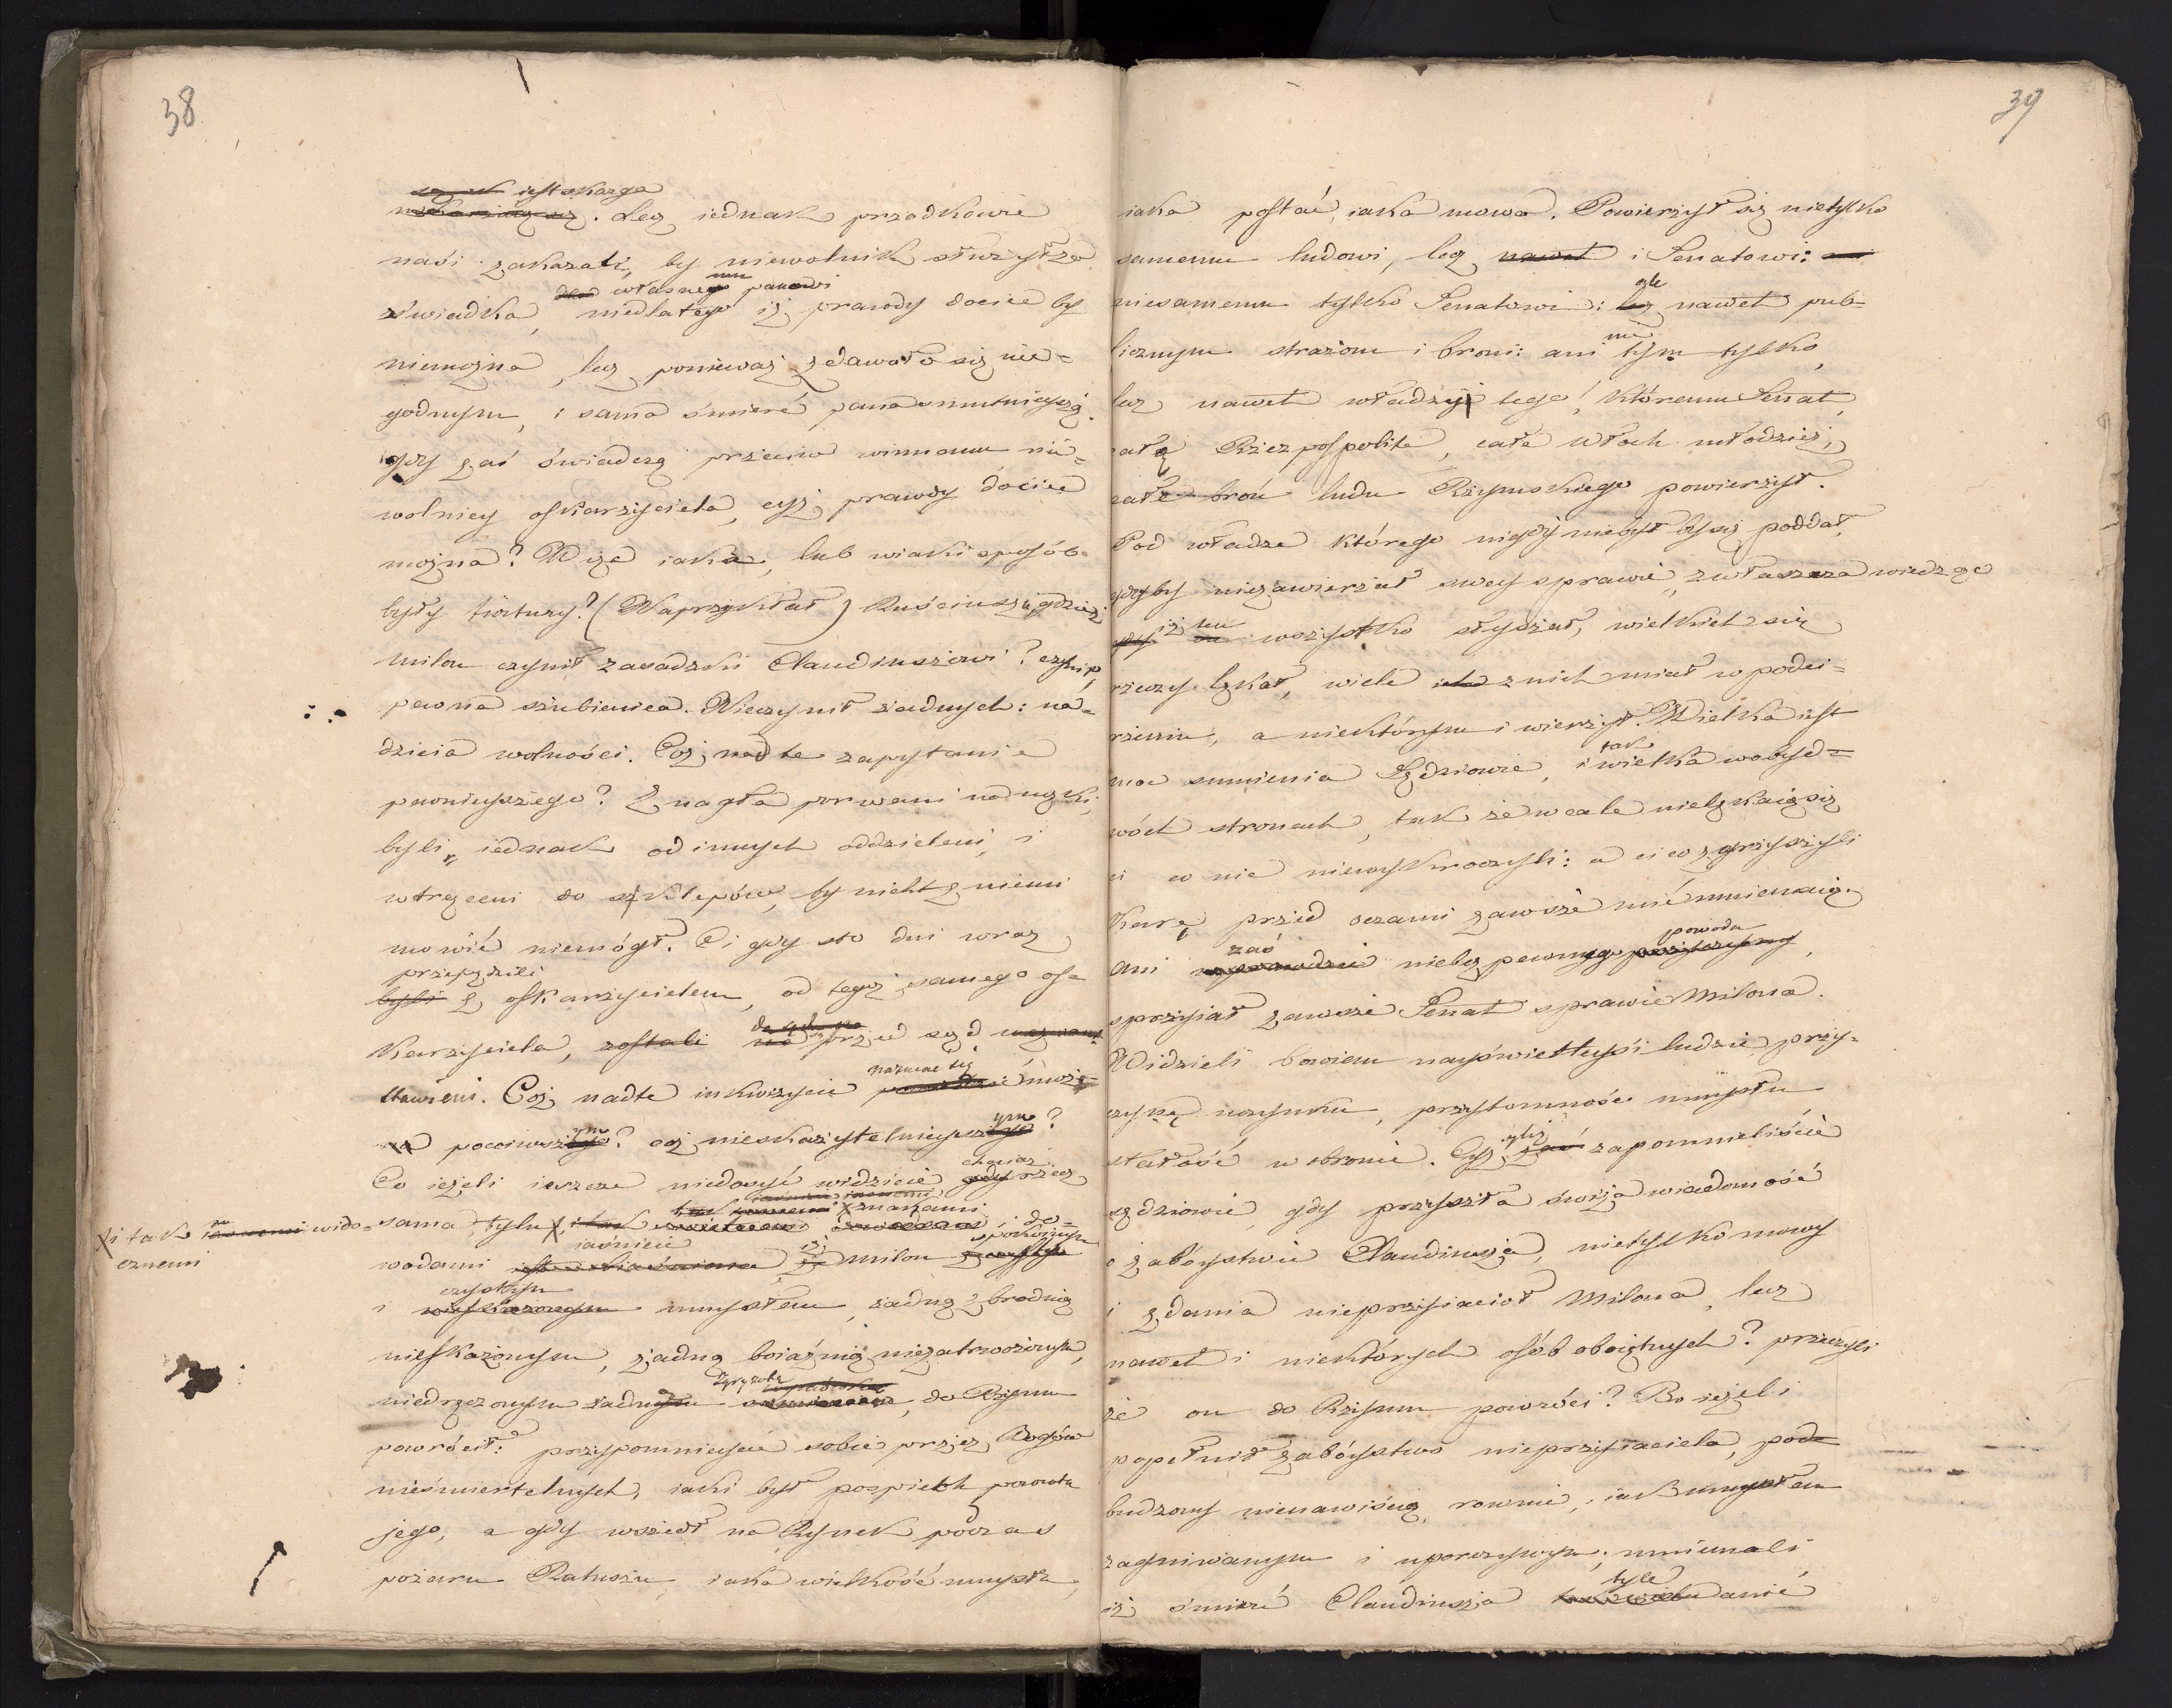 38
iest skarga
. Lecz iednak przodkowie
nasi zakazali, by niewolnik służył za
własnemu panowi
świadka, niedlatego iż prawdy dociec by
niemożna, lecz ponieważ zdawało się nie=
godnym, i sama śmierć pana smutnieyszą.
gdy zaś świadczą przeciw winnemu nie=
wolnicy oskarżyciela, czyż prawdy dociec
można? W iże iaka, lub wiaki sposób
były tortury? (Naprzykład) Ruscius gdzież
Milon czynił zasadzki Claudiuszowi? czynił,
pewna szubienica. Nieczynił żadnych: na=
dzieia wolności. Cóż nad te zapytanie
pewnieyszego? Z nagła porwani na męki,
byli, iednak od innych oddzieleni, i
wtrąceni do sklepów, by nicht z niemi
mówić niemógł. Ci gdy sto dni wraz
przepędzili
byli z oskarżycielem, od tegoż samego os=
karżyciela, zostali przed sąd
stawieni. Cóż nadte inkwizycie nazwać się może
poczciwszym? cóż nieskazitelnieyszym?
Co ieżeli ieszcze niedosyć widzicie chociaż gdy rzecz
sama, tylu, znakami i do=
X i tak iawnemi wido=
cznemi
wodami iaśnieie iż Milon spokoynym
czystym
i umysłem, żadną zbrodnią
nieskażonym, żadną boiaźnią niezatrwożonym,
niedręczonym żadną zgryzotą, do Rzymu
powrócił: przypomniycie sobie przez Bogów
nieśmiertelnych, iaki był pospiech powrotu
jego, a gdy wszedł na Rynek podczas
pożaru Ratusza, iaka wielkość umysłu,
39
iaka postać, iaka mowa. Powierzył się nietylko
samemu ludowi, lecz nawet i Senatowi:
niesamemu tylko Senatowi: ale lecz nawet pub=
licznym strażom i broni: ani nie tym tylko,
lecz nawet władzy tego, któremu Senat,
całą Rzezpospolite, całe Włoch młodzież,
całe broń ludu Rzymskiego powierzył.
Pod władze którego nigdy niebyłbysię poddał,
gdyby niezawierzał swey sprawie, zwłaszcza wiedząc
gdy iż ten on wszystko słyszał, wielkich się
rzeczy lękał, wiele z nich miał w podei=
rzeniu, a niektórym i wierzył. Wielka iest
moc sumienia Sędziowie, i tak wielka wobyd=
wóch stronach, tak że wcale nielękaią się
ci co nic niewykroczyli: a ci co zgrzeszyli
karę przed oczami zawsze mieć mniemaią.
Ani zaś niebez pewnego powodu,
sprzyiał zawsze Senat sprawie Milona.
Widzieli bowiem nayświetleysi ludzie przy=
czynę uczynku, przytomność umysłu
stałość w obronie. Czyliż zaś zapomnieliście
sędziowie, gdy przyszła świeża wiadomość
o zabóystwie Claudiusza, nietylko mowy
i zdania nieprzyiaciół Milona, lecz
nawet i niektórych osób oboiętnych? przeczyli
że on do Rzymu powróci? Bo ieżeli
popełnił zabóystwo nieprzyiaciela, pod=
budzony nienawiścią, rownie, iak umysłem
zagniewanym i uporczywym, mniemali
iż śmierć Claudiusza tyle